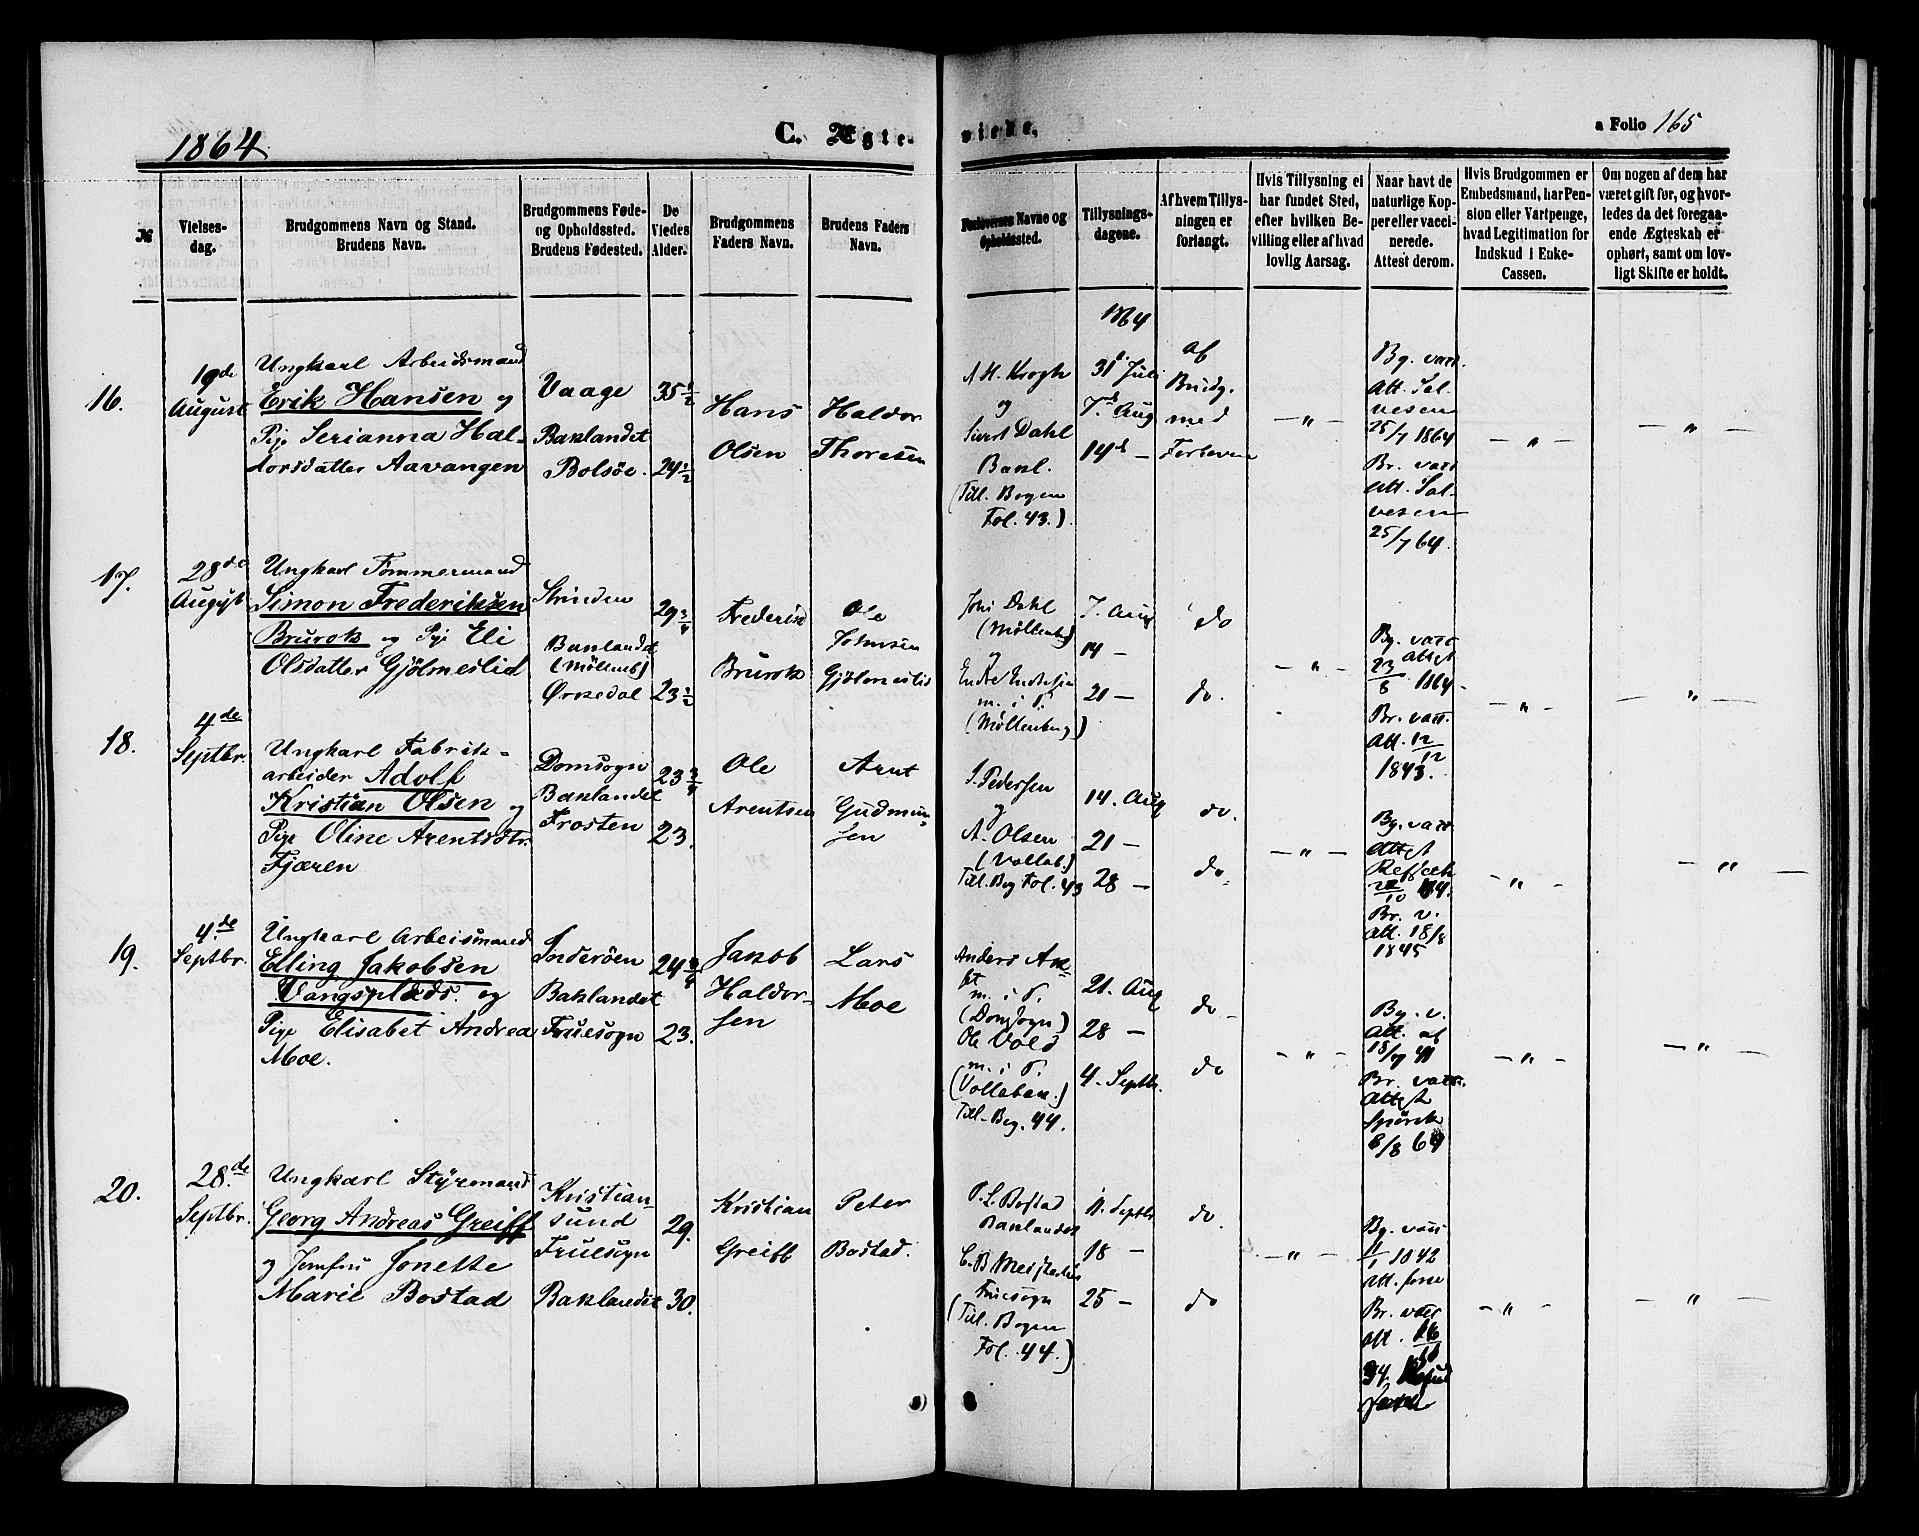 1864
C. Ægte-
viede.
a Folio 165
№
Vielses-
dag.
Brudgommens Navn og Stand.
Brudens Navn.
Brudgommens Føde-
og Opholdssted.
Brudens Fødested.
De
Viedes
Alder.
Brudgommens
Faders Navn.
Brudens Faders
Navn.
Forlovernes Navne og
Opholdssted.
Tillysnings-
dagene.
Af hvem Tillys-
ningen er
forlangt.
Hvis Tillysning ei
har fundet Sted,
efter hvilken Be-
villing eller af hvad
lovlig Aarsag.
Naar havt de
naturlige Kop-
per eller vacci-
nerede.
Attest derom.
Hvis Brudgommen er
Embedsmand, har Pen-
sion eller Vartpenge,
hvad Legitimation for
Indskud i Enke-
Cassen.
Om nogen af dem har
været gift før, og hvor-
ledes da det foregaa-
ende Ægteskab er
ophørt, samt om lov-
ligt Skifte er holdt.
16.
19de
August
Ungkarl Arbeidsmand
Erik Hansen og
Pige Serianna Hal-
dorsdatter Aavangen
Vaage
Baklandet
Bolsöe.
35 1/2
24 1/2
Hans
Olsen
Haldor
Thoresen
A H. Krogh
og
Sivert Dahl
Bakl.
(Till. Bogen
Fol. 43.)
1864
31 Juli
7. Aug
14d —
Af
Brudg.
med
Forloven
— " —
Bg. vacc.
Att. Sal-
vesen
25/7 1864
Br. vacc
Att. Sal-
vesen
25/7 64.
— " —
— " —
17.
28de
August
Ungkarl Tömmermand
Simon Frederiksen
Brurok og Pige Eli
Olsdatter Gjölmeslid
Strinden
Baklandet
(Möllenb)
Örkedal
29 3/4
23 1/2
Frederik
Brurok
Ole
Johnsen
Gjölmeslid
John Dahl
(Möllenbg)
og
Endre
m. i d.
(Möllenberg)
7. Aug
14 —
21 —
do
do.
— " —
Bg. vacc
Attest
23/8 1864
Br. vacc.
Att. 12/12
1843.
— " —
— " —
18.
4de
Septbr.
Ungkarl Fabrik-
arbeider Adolf
Kristian Olsen og
Pige Oline Arentsdtr.
Fjæren
Domsogn
Baklandet
Frosten
23 3/4
23.
Ole
Arentsen
Arnt
Gudmun-
sen
S. Pedersen
og
A. Olsen
(Vollab.)
Till. Bog Fol. 43
14. Aug
21 —
28 —
do.
do.
— " —
Bg. vacc
Attest
Br. v.
Att. 18/8
1845
— " —
— " —
19.
4.de
Septbr.
Ungkarl Arbeismand
Elling Jakobsen
Vangsplads. og
Pige Elisabet Andrea
Moe.
Inderöen
Baklandet
Fruesogn
24 3/4
23.
Jakob
Haldor-
sen
Lars
Moe
Anders
m. i d.
(Domsogn)
Ole Vold
m. i d.
(Vollaban.)
Till. Bog. 44.
21. Aug
28 —
4. Septbr.
do
do
— " —
Bg. v.
Att. af
18/7 41
Br. vacc.
Attest
Spörck
8/8 64
— " —
— " —
20.
28.de
Septbr.
Ungkarl Styrmand
Georg Andreas Greiff
og Jomfru Jonette
Marie Bostad
Kristian-
sund
Fruesogn
Baklandet
29.
30.
Kristian
Greiff
Peter
Bostad.
P. L. Bostad
Baklandet
C. B
Fruesogn
(Till. Bogen
Fol. 44.)
11. Septbr
18 —
25 —
do.
do
— " —
Bg. vacc
11/1 1842
Br. vacc
Att.
34.
— " —
— " —